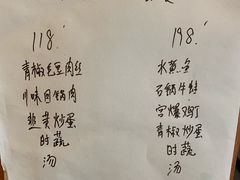 118.
青椒毛豆肉丝
川味回锅肉
韭黄炒蛋
时蔬
汤
198.
水煮鱼
石锅牛蛙
宫爆鸡丁
青椒炒蛋
时蔬
汤